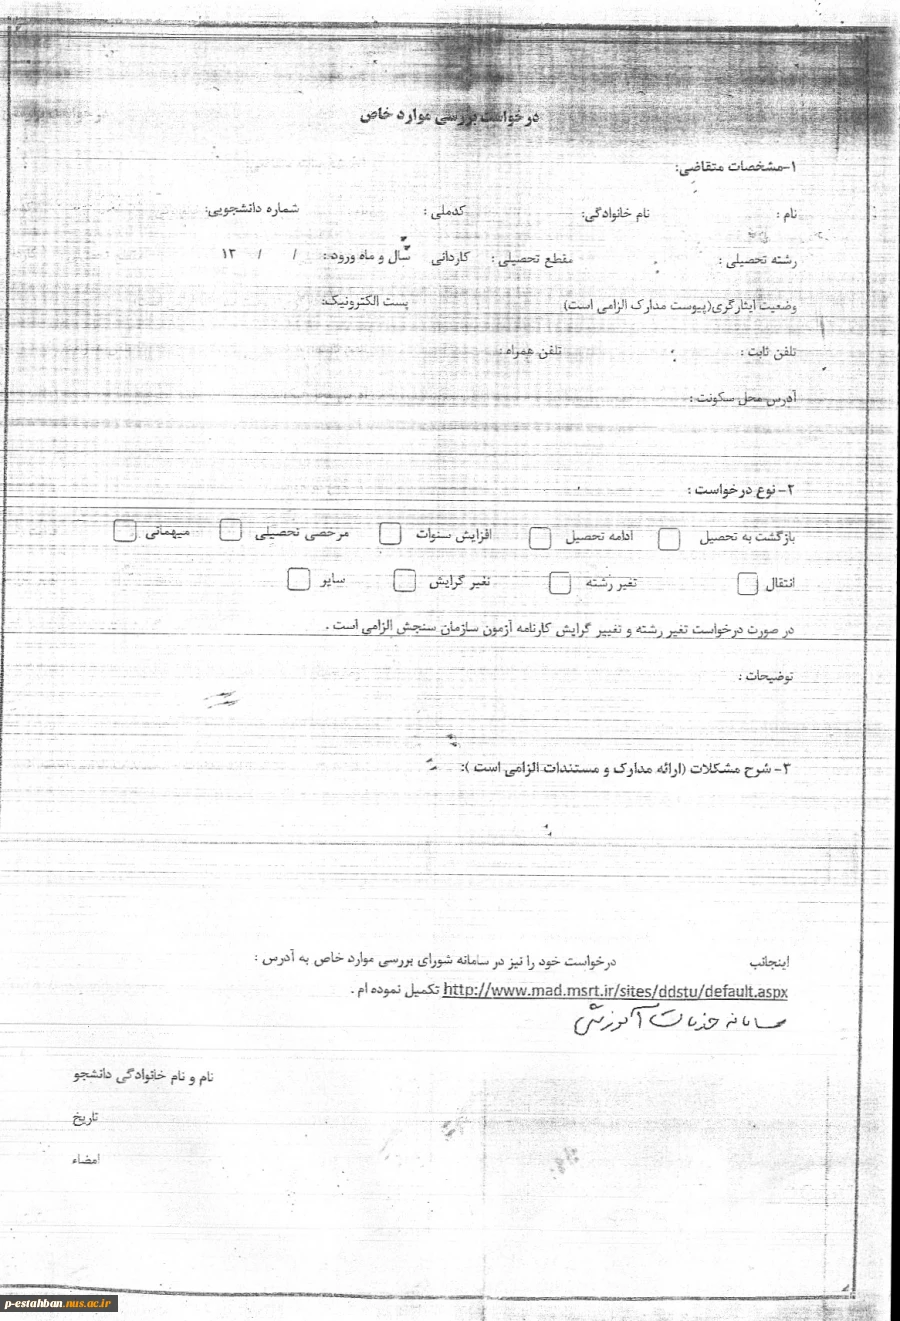 درخواست بررسی موارد خاص
۱-مشخصات متقاضی:
نام : نام خانوادگی: کدملی : شماره دانشجویی:
رشته تحصیلی : مقطع تحصیلی : کاردانی سال و ماه ورود : / / ۱۳
وضعیت ایثارگری(پیوست مدارک الزامی است) پست الکترونیک:
تلفن ثابت : تلفن همراه :
آدرس محل سکونت :
۲- نوع درخواست :
بازگشت به تحصیل ادامه تحصیل افزایش سنوات مرخصی تحصیلی میهمانی
انتقال تغیر رشته تغیر گرایش سایر
در صورت درخواست تغیر رشته و تغییر گرایش کارنامه آزمون سازمان سنجش الزامی است .
توضیحات :
۳- شرح مشکلات (ارائه مدارک و مستندات الزامی است ):
اینجانب درخواست خود را نیز در سامانه شورای بررسی موارد خاص به آدرس :
http://www.mad.msrt.ir/sites/ddstu/default.aspx تکمیل نموده ام .
سامانه خدمات آموزشی
نام و نام خانوادگی دانشجو
تاریخ
امضاء
p-estahban.nus.ac.ir